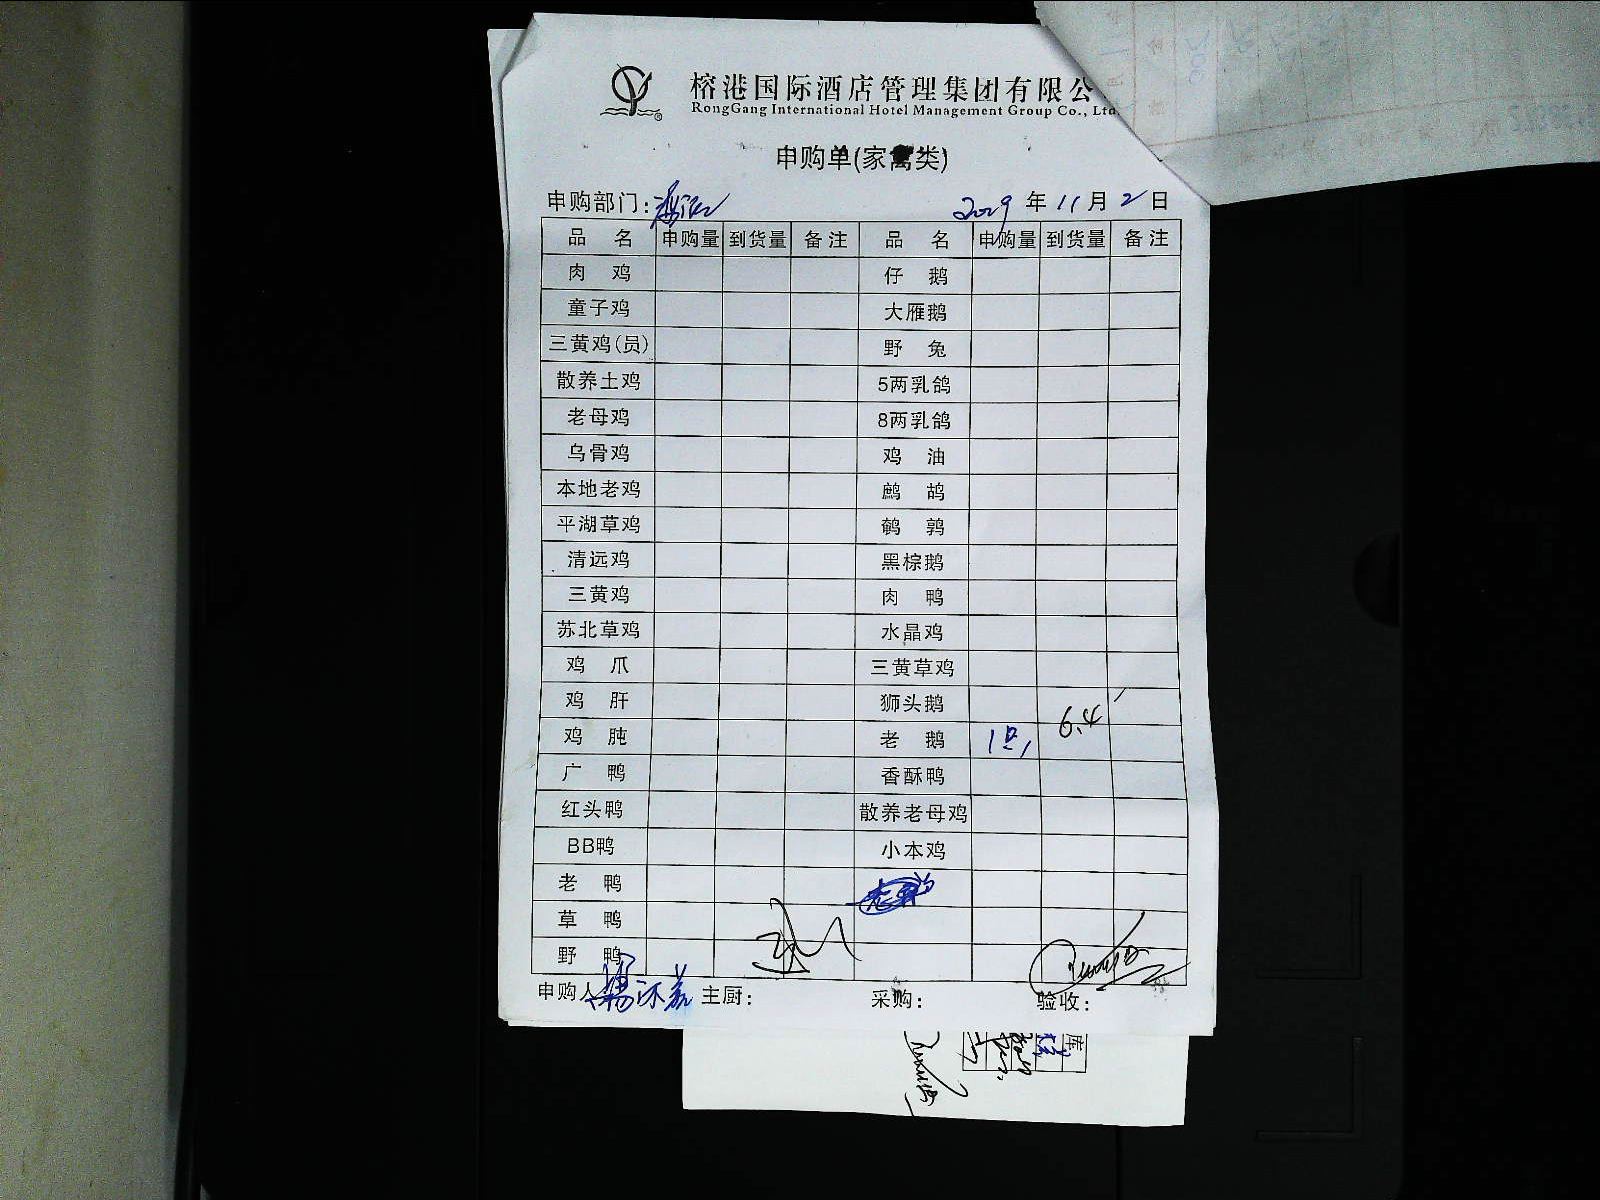 榕港国际酒店管理集团有限公
RongGang International Hotel Management Group Co., Ltd.
申购单(家禽类)
申购部门: 2029年11月2日
品名 申购量 到货量 备注 品名 申购量 到货量 备注
肉鸡 仔鹅
童子鸡 大雁鹅
三黄鸡(员) 野兔
散养土鸡 5两乳鸽
老母鸡 8两乳鸽
乌骨鸡 鸡油
本地老鸡 鹧鸪
平湖草鸡 鹌鹑
清远鸡 黑棕鹅
三黄鸡 肉鸭
苏北草鸡 水晶鸡
鸡爪 三黄草鸡
鸡肝 狮头鹅
鸡肫 老鹅 1只 6.4
广鸭 香酥鸭
红头鸭 散养老母鸡
BB鸭 小本鸡
老鸭
草鸭
野鸭
申购人 主厨: 采购: 验收:
库